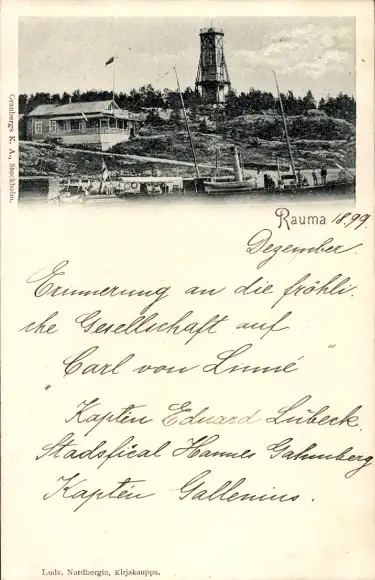 Granbergs K. A., Stockholm.
Rauma 18.99.
Dezember.
Erinnerung an die fröhli-
che Gesellschaft auf
"Carl von Linné"
Kapten Eduard Lübeck.
Stadsfical Hannes Gahmberg
Kapten Gallenius.
Ludv. Nordbergin, Kirjakauppa.